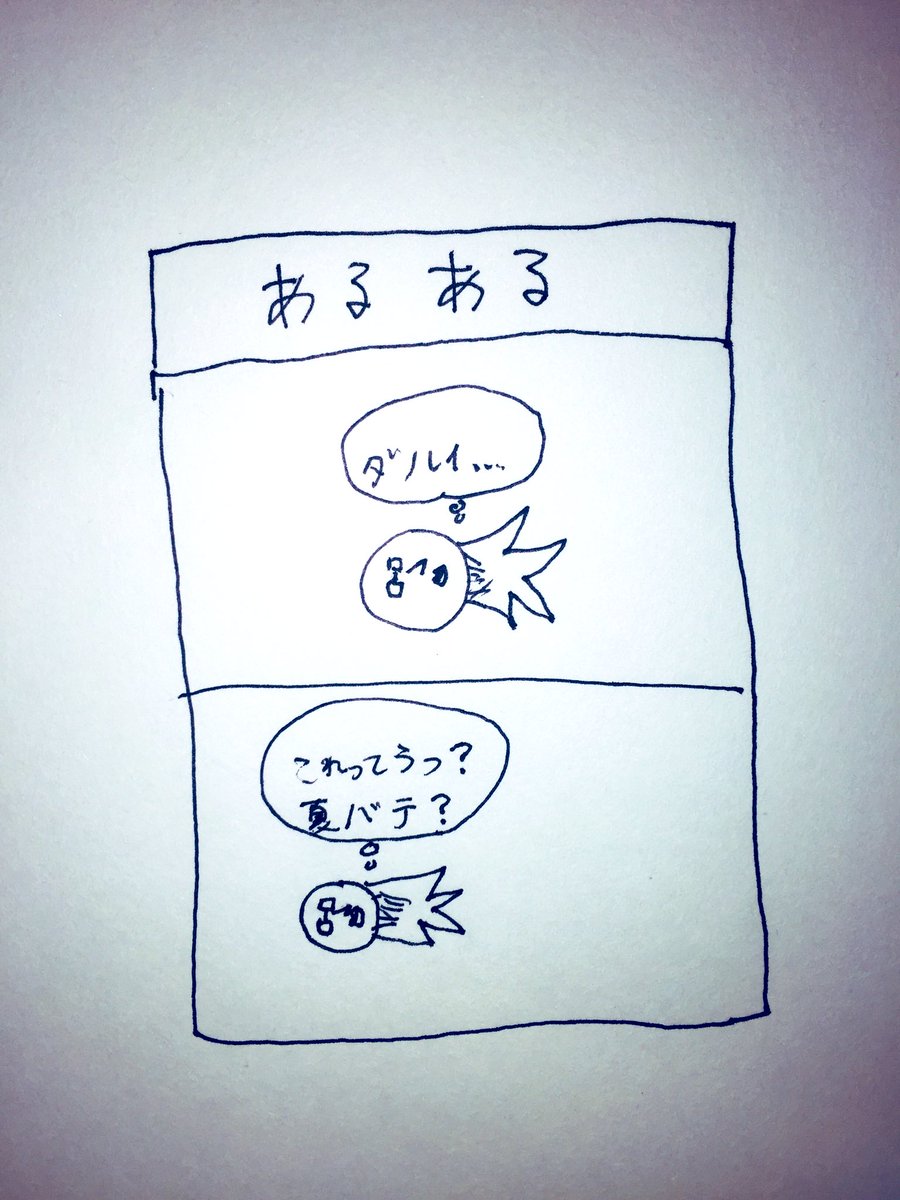 あるある
ダルイ...
これってうつ?
夏バテ?